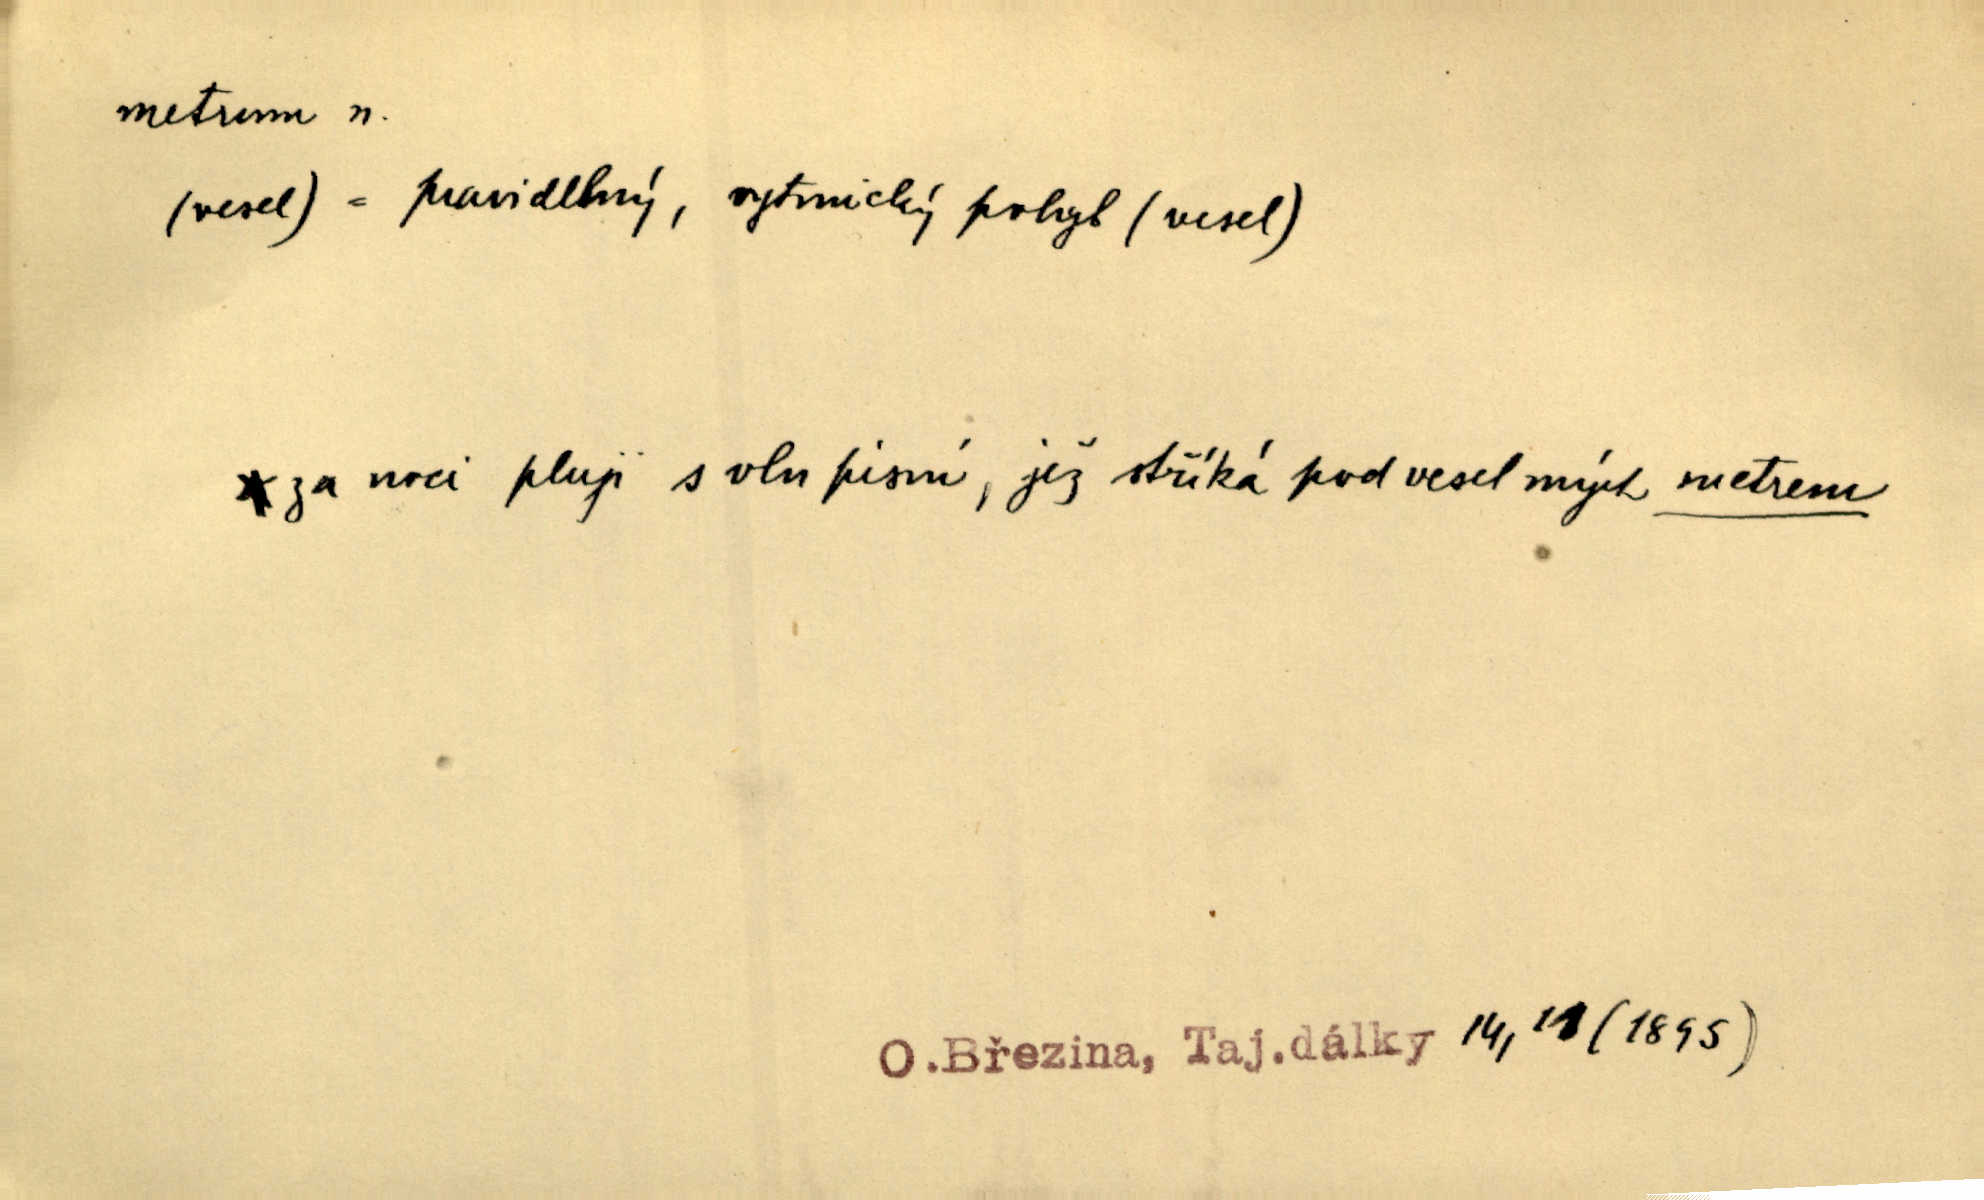 metrum n.
(vesel) = pravidelný, rytmický pohyb (vesel)
za noci pluji s vln písní, jež stříká pod vesel mých metrem
O.Březina, Taj.dálky 14, 11 (1895)